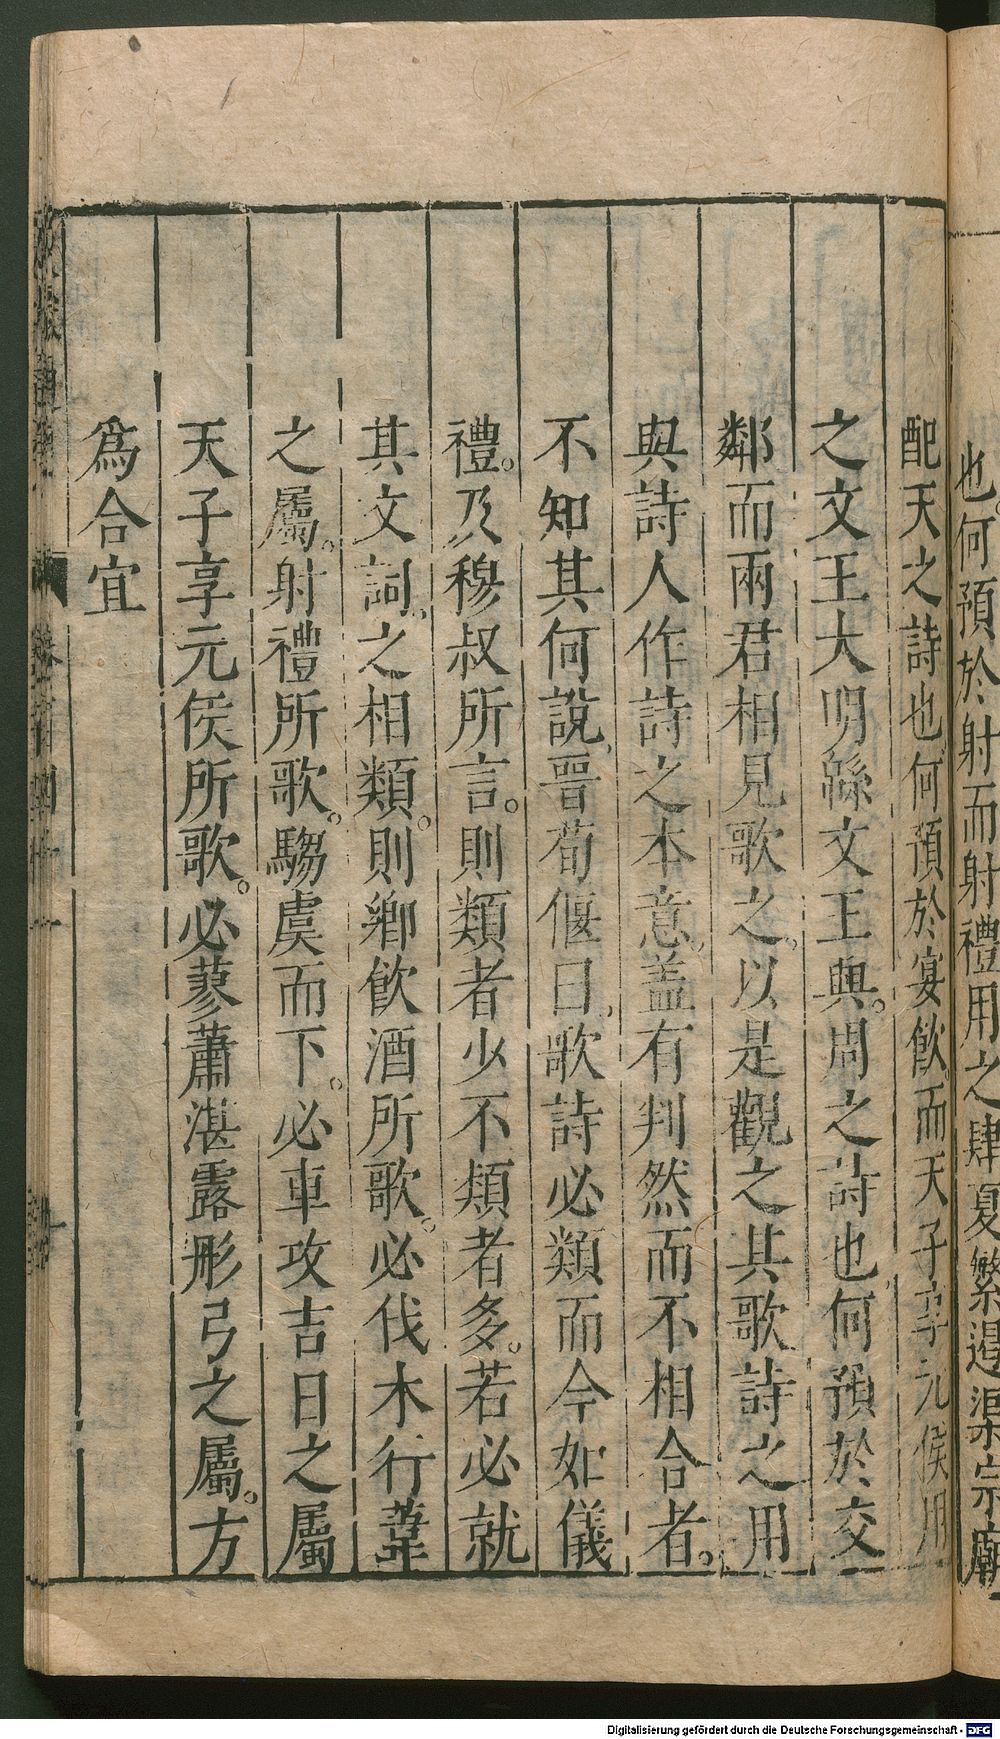 也。何預於射而射禮用之肆夏繁遏渠宗廟
配天之詩也何預於宴飲。而天子享元侯用
之文王大明緜文王興。周之詩也何預於交
鄰而兩君相見歌之。以是觀之其歌詩之用
與詩人作詩之本意。蓋有判然而不相合者。
不知其何說。晉荀偃曰。歌詩必類而今如儀
禮。及穆叔所言。則類者少不類者多。若必就
其文詞。之相類。則鄉飲酒所歌。必伐木行葦
之屬。射禮所歌。騶虞而下。必車攻吉日之屬
天子享元侯所歌。必蓼蕭湛露彤弓之屬。方
為合宜
Digitalisierung gefördert durch die Deutsche Forschungsgemeinschaft - DFG